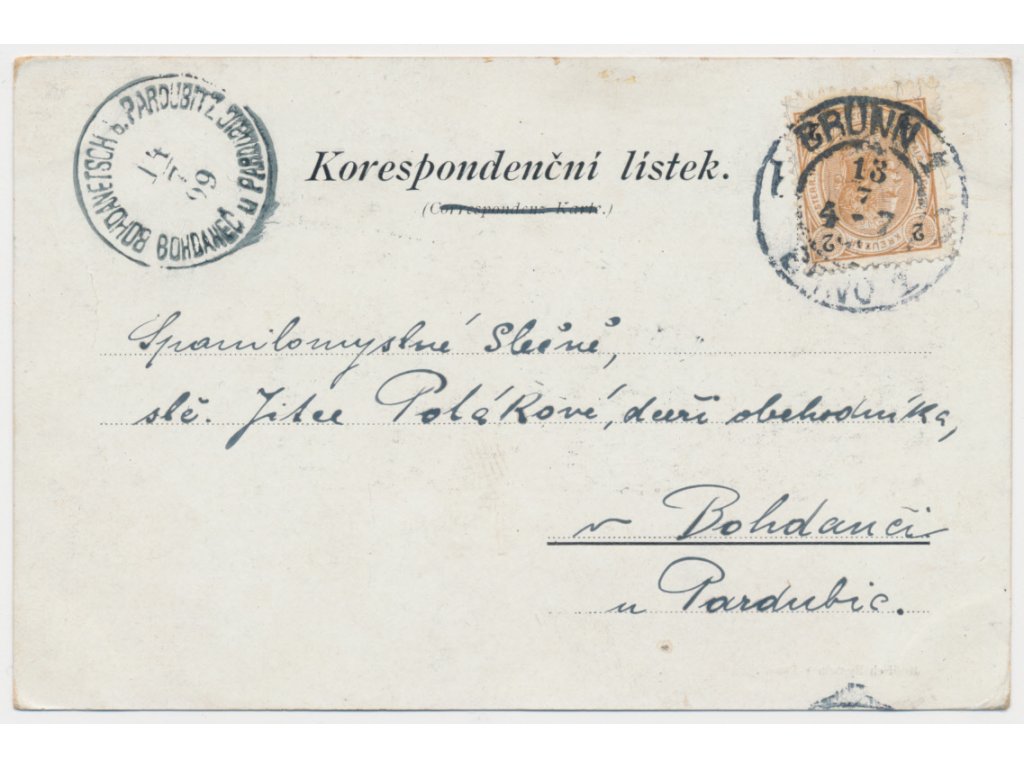 BOHDANETSCH b. PARDUBITZ
BOHDANEČ u PARDUBIC
14
99
Korespondenční lístek.
(Correspondenz-Karte.)
BRÜNN
13
7
BRNO 1
2
2
Spanilomyslné Slečně,
slč. Jitce Polákové, dceři obchodníka,
v Bohdanči
u Pardubic.